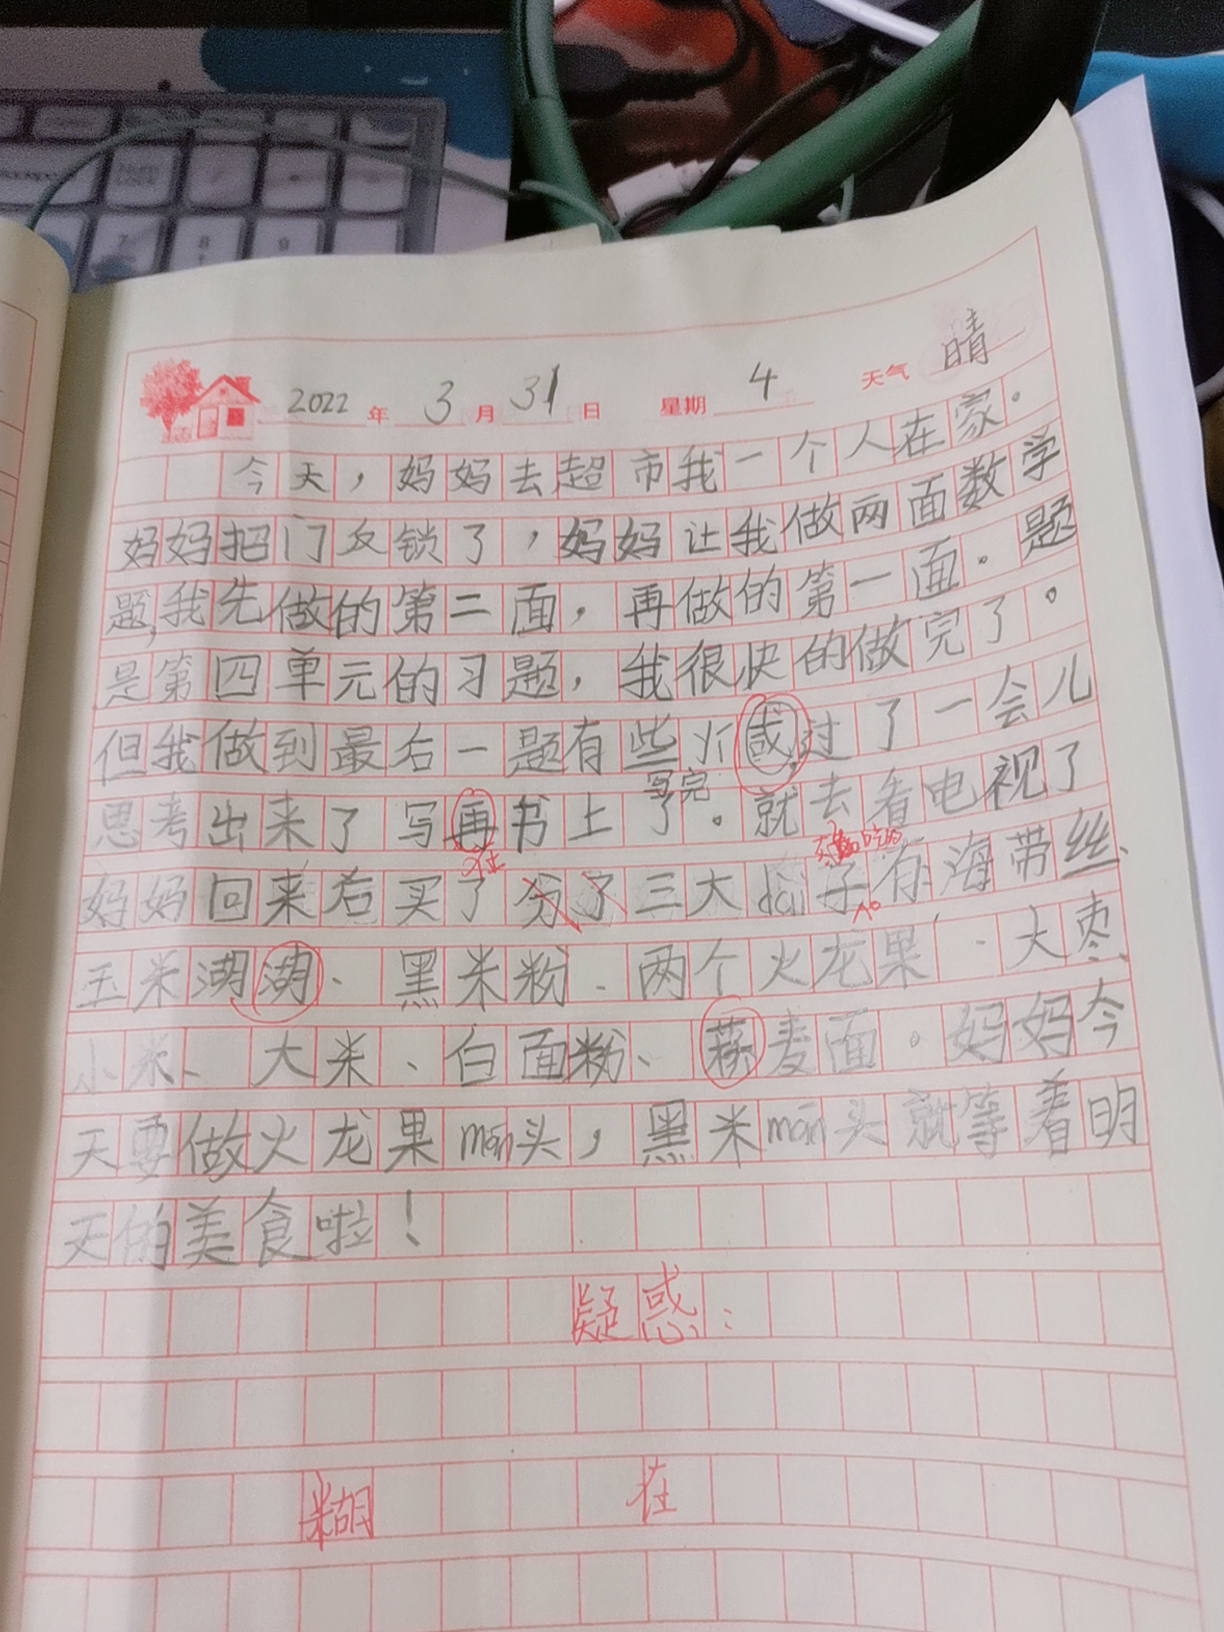 2022 年 3 月 31 日 星期 4 天气 晴
今天，妈妈去超市我一个人在家。
妈妈把门反锁了，妈妈让我做两面数学
题，我先做的第二面，再做的第一面。题
是第四单元的习题，我很快的做完了。
但我做到最后一题有些 过了一会儿
思考出来了写再书上了。就去看电视了
写完
在
妈妈回来后买了 三大dài子有海带丝、
吃的
玉米湖湖、黑米粉、两个火龙果、大枣、
小米、大米、白面粉、荞麦面。妈妈今
天要做火龙果mán头，黑米mán头就等着明
天的美食啦！
疑惑：
糊 在
7 8 9